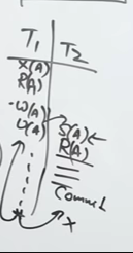 T₁ T₂
X(A)
R(A)
W(A)
U(A) S(A)
R(A)
Commit